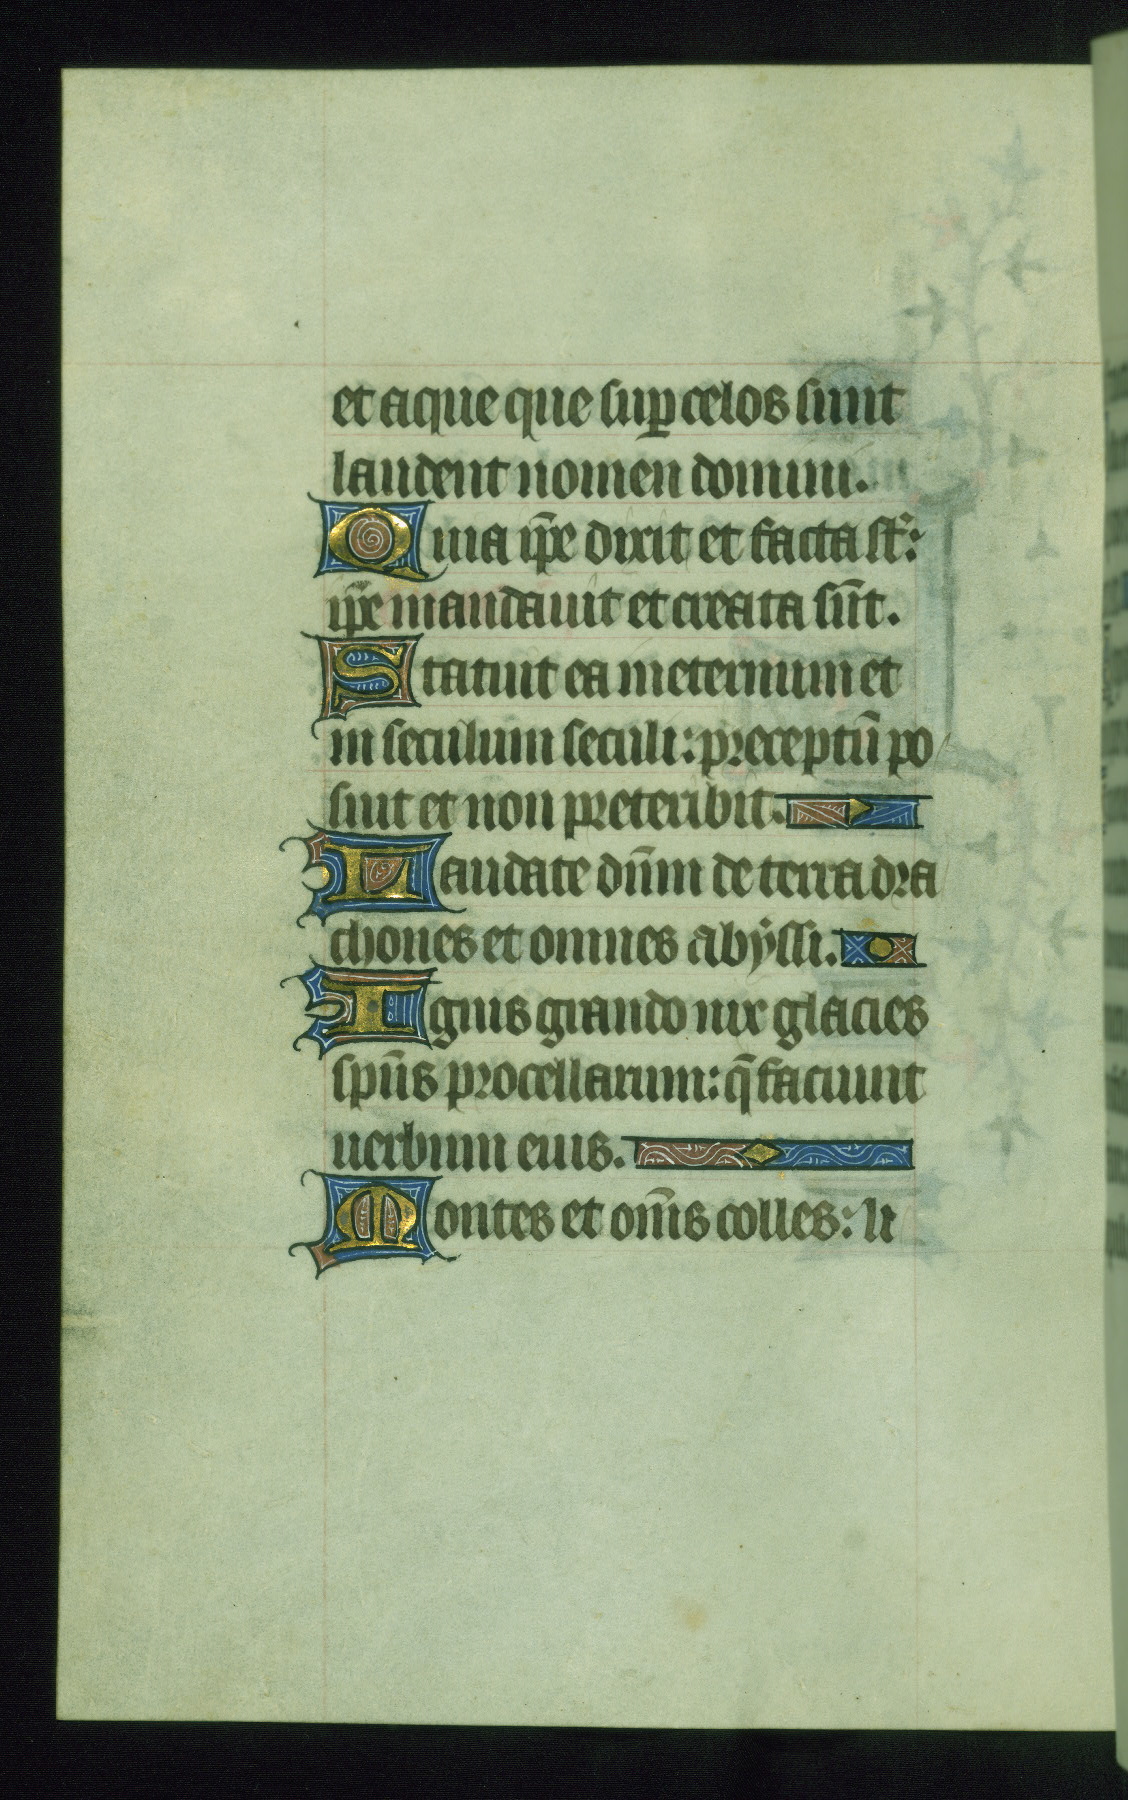 et aque que sup celos sunt
laudent nomen domini.
Quia ip̄e dixit et facta st̄:
ip̄e mandauit et creata sūt.
Statuit ea in eternum et
in seculum seculi: preceptū po
suit et non preteribit.
Laudate dūm de terra dra
chones et omnes abẏssi.
Ignis grando nix glacies
spūs procellarum: q̄ faciunt
uerbum eius.
Montes et om̄is colles: li